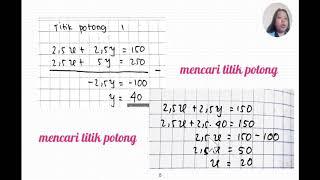 Titik potong 1
2,5x + 2,5y = 150
2,5x + 5y = 250
-
-2,5y = -100
y = 40
mencari titik potong
mencari titik potong
2,5x + 2,5y = 150
2,5x + 2,5 . 40 = 150
2,5x = 150 - 100
2,5x = 50
x = 20